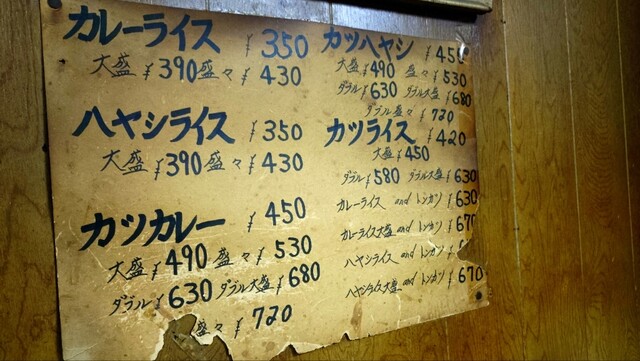 カレーライス ¥350
大盛 ¥390 盛々 ¥430
ハヤシライス ¥350
大盛 ¥390 盛々 ¥430
カツカレー ¥450
大盛 ¥490 盛々 ¥530
ダブル ¥630 ダブル大盛 ¥680
盛々 ¥720
カツハヤシ ¥450
大盛 ¥490 盛々 ¥530
ダブル ¥630 ダブル大盛 ¥680
ダブル盛々 ¥720
カツライス ¥420
大盛 ¥450
ダブル ¥580 ダブル大盛 ¥630
カレーライス and トンカツ ¥630
カレーライス大盛 and トンカツ ¥670
ハヤシライス and トンカツ ¥
ハヤシライス大盛 and トンカツ ¥670